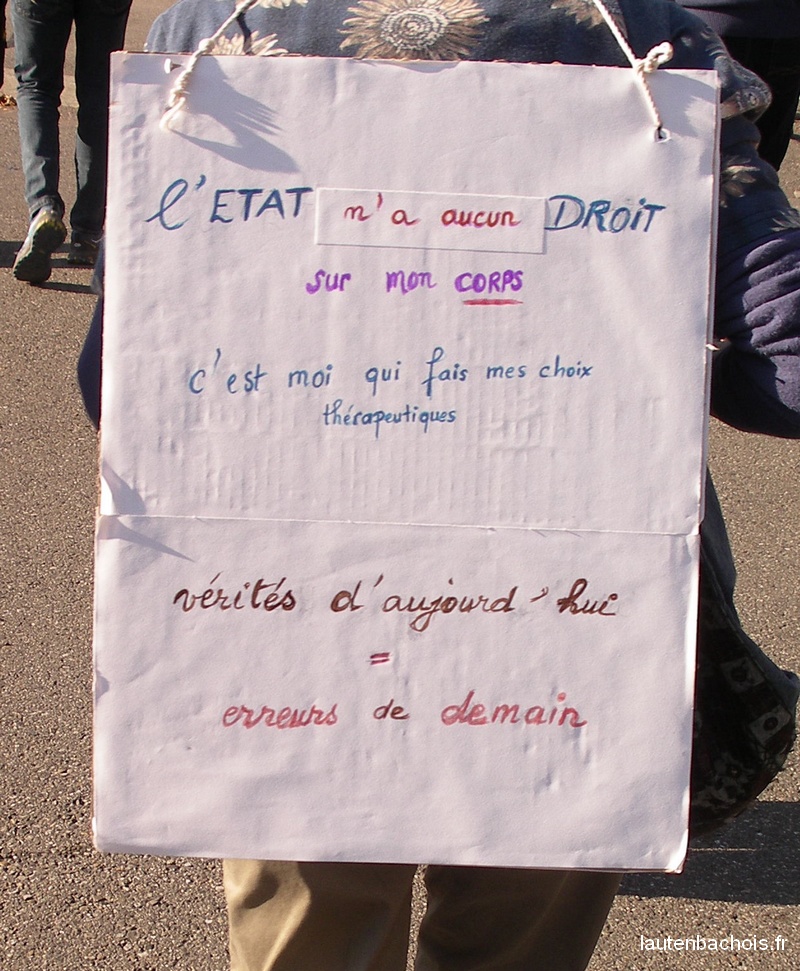 l'ETAT n'a aucun DROIT
sur mon CORPS
c'est moi qui fais mes choix
thérapeutiques
vérités d'aujourd'hui
=
erreurs de demain
lautenbachois.fr